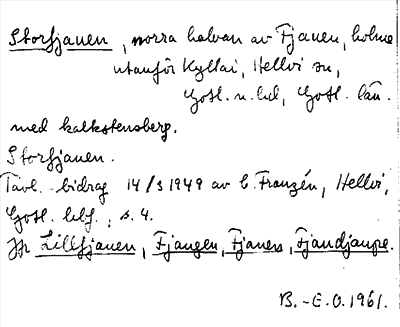 Storfjauen, norra halvan av Fjauen, holme
utanför Kyllai, Hellvi sn,
Gotl. n. hd, Gotl. län.
med kalkstensberg.
Storfjauen.
Tävl.-bidrag 14/3 1949 av C. Franzén, Hellvi,
Gotl. , s. 4.
Jfr Lillfjauen, Fjaugen, Fjauen, Fjaudjaupe.
B.-E.O. 1961.